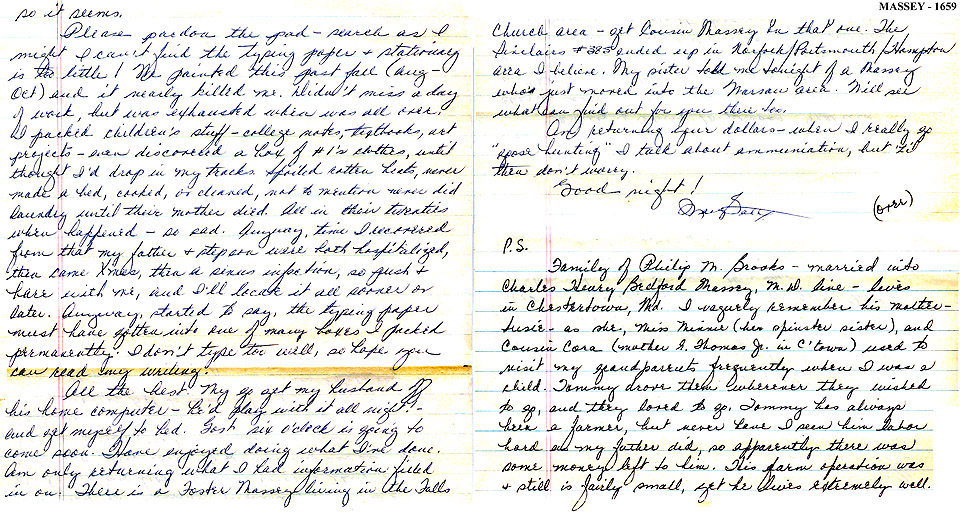 MASSEY - 1659
so it seems.
Please pardon the pad - search as I
might I can't find the typing paper & stationary
is too little! We painted this past fall (Aug-
Oct) and it nearly killed me. Didn't miss a day
of work, but was exhausted when was all over.
I packed children's stuff - college notes, textbooks, art
projects - even discovered a box of #1's clothes, until
thought I'd drop in my tracks. Spoiled rotten brats, never
made a bed, cooked, or cleaned, not to mention never did
laundry until their mother died. All in their twenties
when happened - so sad. Anyway, time I recovered
from that my father & stepson were both hospitalized,
then came Xmas, then a sinus infection, so just
bare with me, and I'll locate it all sooner or
later. Anyway, started to say, the typing paper
must have gotten into one of many boxes I packed
permanently. I don't type too well, so hope you
can read my writing.
All the best. My go get my husband off
his home computer - he'd play with it all night! -
and get myself to bed. Gosh six o'clock is going to
come soon. Have enjoyed doing what I've done.
Am only returning what I had information filled
in on. There is a Foster Massey living in the Falls
Church area - get Cousin Massey on that one. The
Sinclairs ended up in Norfolk/Portsmouth/Hampton
area I believe. My sister told me tonight of a Massey
who's just moved into the Warsaw area. Will see
what can find out for you there too.
Am returning your dollars - when I really go
hunting" I talk about ammuniation, but 'til
then don't worry.
Good night!
(over)
P.S.
Family of Philip M. Brooks married into
Charles Henry Bedford Massey, M.D. line - lives
in Chestertown, Md. I vaguely remember his mother -
Susie - as she, Miss Minnie (her spinster sister), and
Cousin Cora (mother G. Thomas Jr. in C'town) used to
visit my grandparents frequently when I was a
child. Tommy drove them wherever they wished
to go, and they loved to go. Tommy has always
been a farmer, but never have I seen him labor
hard as my father did, so apparently there was
some money left to him. His farm operation was
& still is fairly small, yet he lives extremely well.